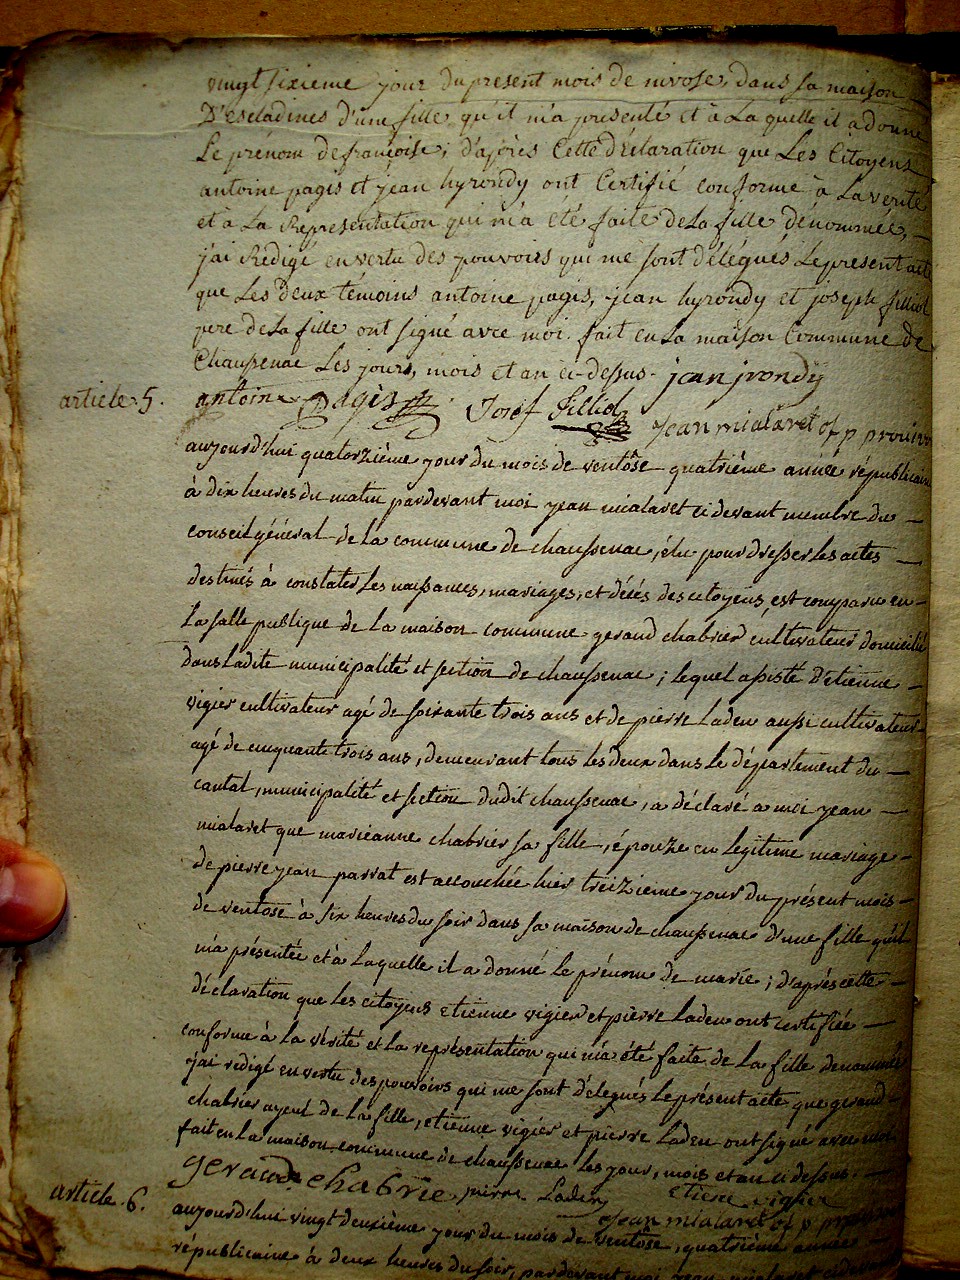 vingt sixieme jour du present mois de nivose, dans sa maison
D'escladines d'une fille qu'il m'a presenté et à La quelle il a donné
Le prénom de françoise; d'après Cette déclaration que Les Citoyens
antoine pagis et jean hyrondy ont Certifié conforme à La verité
et à La Représentation qui m'a été faite de La fille dénommée, —
j'ai Rédigé en vertu des pouvoirs qui me sont délégués Le present acte
que Les deux témoins antoine pagis, jean hyrondy et joseph filliol
pere de La fille ont signé avec moi. fait en La maison Commune de
Chaussenac Les jours, mois et an ci-dessus. jean jrondy
article 5. antoine Pagis Josef Filliol
jean mialaret of p
aujourd'hui quatorzième jour du mois de ventôse quatrième année républicaine
à dix heures du matin pardevant moi jean mialaret ci devant membre du —
conseil général de la commune de chaussenac, élu pour dresser les actes —
destinés à constater Les naissances, mariages, et décés des citoyens, est comparu en
La salle publique de La maison commune geraud chabrier cultivateur domicilié
dans Ladite municipalité et section de chaussenac; lequel assisté d'etienne —
vigier cultivateur agé de soixante trois ans et de pierre Laden aussi cultivateur
agé de cinquante trois ans, demeurant tous Les deux dans Le département du —
cantal, municipalité et section dudit chaussenac, a déclaré a moi jean —
mialaret que marieanne chabrier sa fille, épouze en Legitime mariage —
de pierre jean parrat est accouchée hier treizieme jour du présent mois —
de ventose à six heures du soir dans sa maison de chaussenac d'une fille qu'il
m'a présentée et à Laquelle il a donné Le prénom de marie; d'après cette —
déclaration que Les citoyens Etienne vigier et pierre Laden ont certifiée —
conforme à La vérité et La représentation qui m'a été faite de La fille denommée
j'ai redigé en vertu des pouvoirs qui me sont délegués Le présent acte que geraud
chabrier ayeul de La fille, etienne vigier et pierre Laden ont signé avec moi
fait en La maison commune de chaussenac Les jour, mois et an ci dessus. —
geraud chabrie pierre Laden etiene vigier
article 6. jean mialaret of p
aujourd'hui vingt deuxième jour du mois de ventôse, quatrième année —
républicaine à deux heures du soir, pardevant moi jean mialaret ci devant